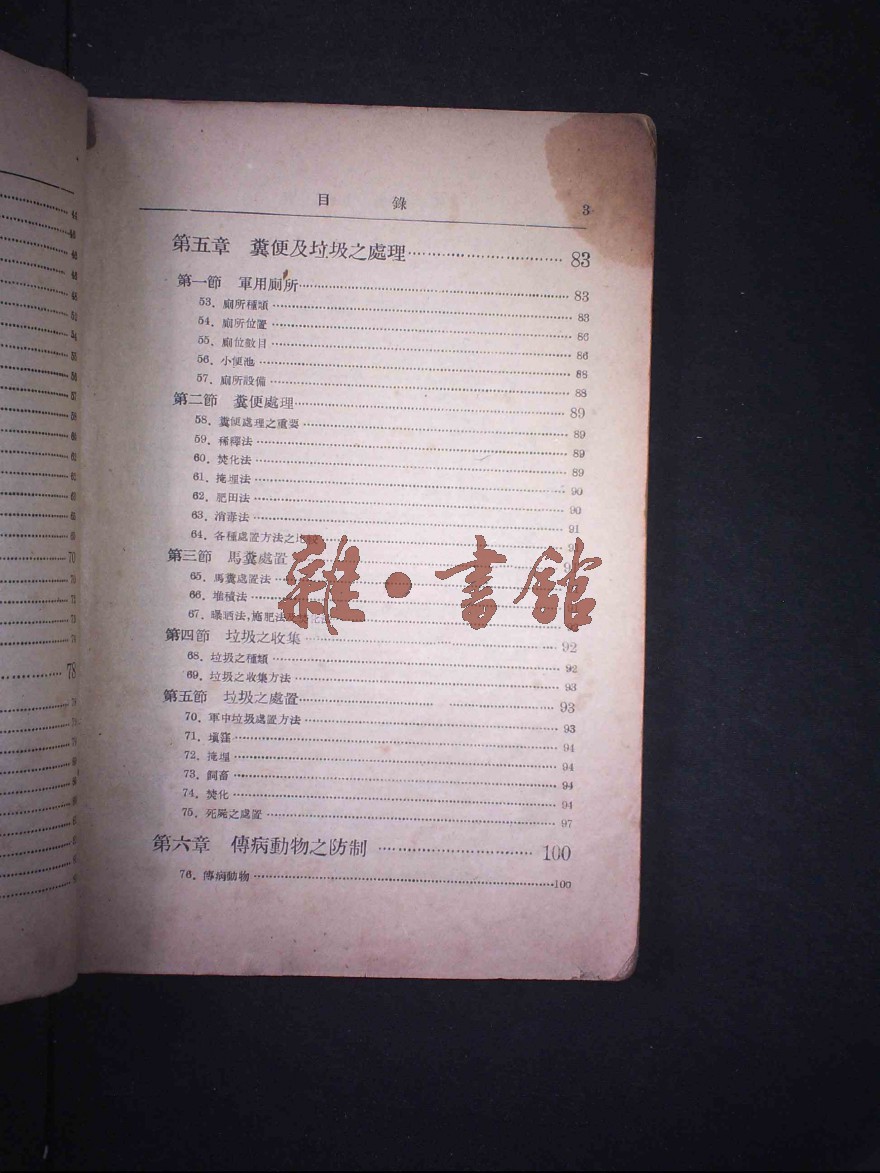 目錄 3
第五章 糞便及垃圾之處理 83
第一節 軍用廁所 83
53. 廁所種類 83
54. 廁所位置 86
55. 廁位數目 86
56. 小便池 88
57. 廁所設備 88
第二節 糞便處理 89
58. 糞便處理之重要 89
59. 稀釋法 89
60. 焚化法 89
61. 掩埋法 90
62. 肥田法 90
63. 消毒法 91
64. 各種處置方法之比較
第三節 馬糞處置
65. 馬糞處置法
66. 堆積法
67. 曝晒法,施肥法及焚化法
第四節 垃圾之收集 92
68. 垃圾之種類 92
69. 垃圾之收集方法 93
第五節 垃圾之處置 93
70. 軍中垃圾處置方法 93
71. 填窪 94
72. 掩埋 94
73. 飼畜 94
74. 焚化 94
75. 死屍之處置 97
第六章 傳病動物之防制 100
76. 傳病動物 100
雜·書館